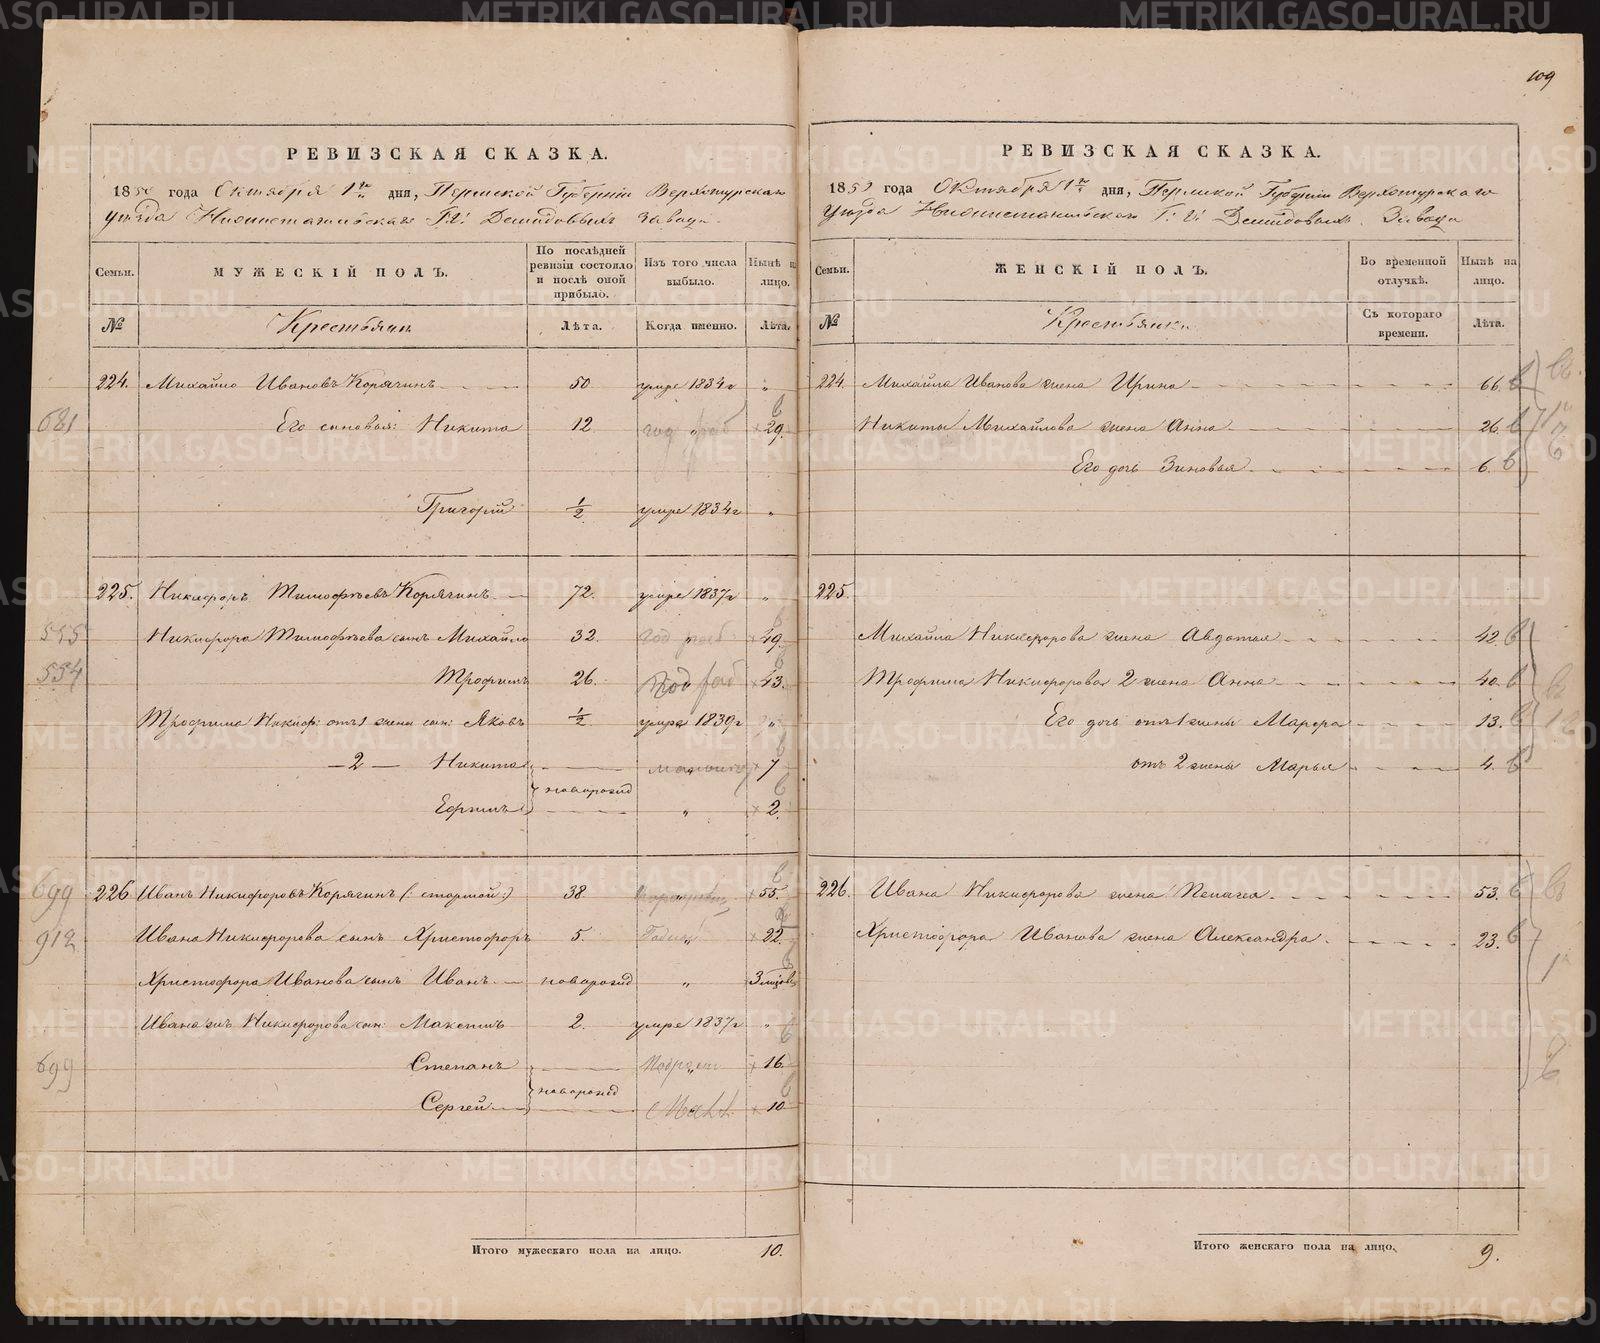 109
РЕВИЗСКАЯ СКАЗКА.
1850 года Октября 1го дня, Пермской Губерніи Верхотурскаго
уѣзда Нижнетагильскаго Г.Г. Демидовыхъ Завода
Семьи.
МУЖЕСКІЙ ПОЛЪ.
По послѣдней ревизіи состояло и послѣ оной прибыло.
Изъ того числа выбыло.
Нынѣ на лицо.
№
Крестьяне
Лѣта.
Когда именно.
Лѣта.
224. Михайло Ивановъ Корягинъ 50. умре 1834г "
681 Его сыновья: Никита 12 год " 29.
Григорій 1/2 умре 1834г "
225. Никифоръ Тимофѣевъ Корягинъ 72. умре 1837г "
555 Никифора Тимофѣева сынъ Михайло 32. год " 49.
554 Трофимъ 26. год 43.
Трофима Никиф: отъ 1 жены сын: Яковъ 1/2 умре 1839г "
—2— Никита 7
новорожд
Ефимъ " 2.
699 226 Иванъ Никифоровъ Корягинъ (: старшой:) 38 " 55.
912 Ивана Никифорова сынъ Христофоръ 5. " 22.
Христофора Иванова сынъ Иванъ новорожд "
Ивана жъ Никифорова сын: Максимъ 2. умре 1837г "
699 Степанъ " 16.
новорожд
Сергей 10
Итого мужескаго пола на лицо. 10.
РЕВИЗСКАЯ СКАЗКА.
1850 года Октября 1го дня, Пермской Губерніи Верхотурскаго
уѣзда Нижнетагильскаго Г.Г. Демидовыхъ Завода
Семьи.
ЖЕНСКІЙ ПОЛЪ.
Во временной отлучкѣ.
Нынѣ на лицо.
№
Крестьянки
Съ котораго времени.
Лѣта.
224. Михайла Иванова жена Ирина 66.
Никиты Михайлова жена Анна 26.
Его дочь Зиновья 6.
225.
Михайла Никифорова жена Авдотья 42
Трофима Никифорова 2 жена Анна 40.
Его дочь отъ 1 жены Марфа 13.
отъ 2 жены Марья 4.
226. Ивана Никифорова жена Пелагея 53.
Христофора Иванова жена Александра 23.
Итого женскаго пола на лицо. 9.
METRIKI.GASO-URAL.RU